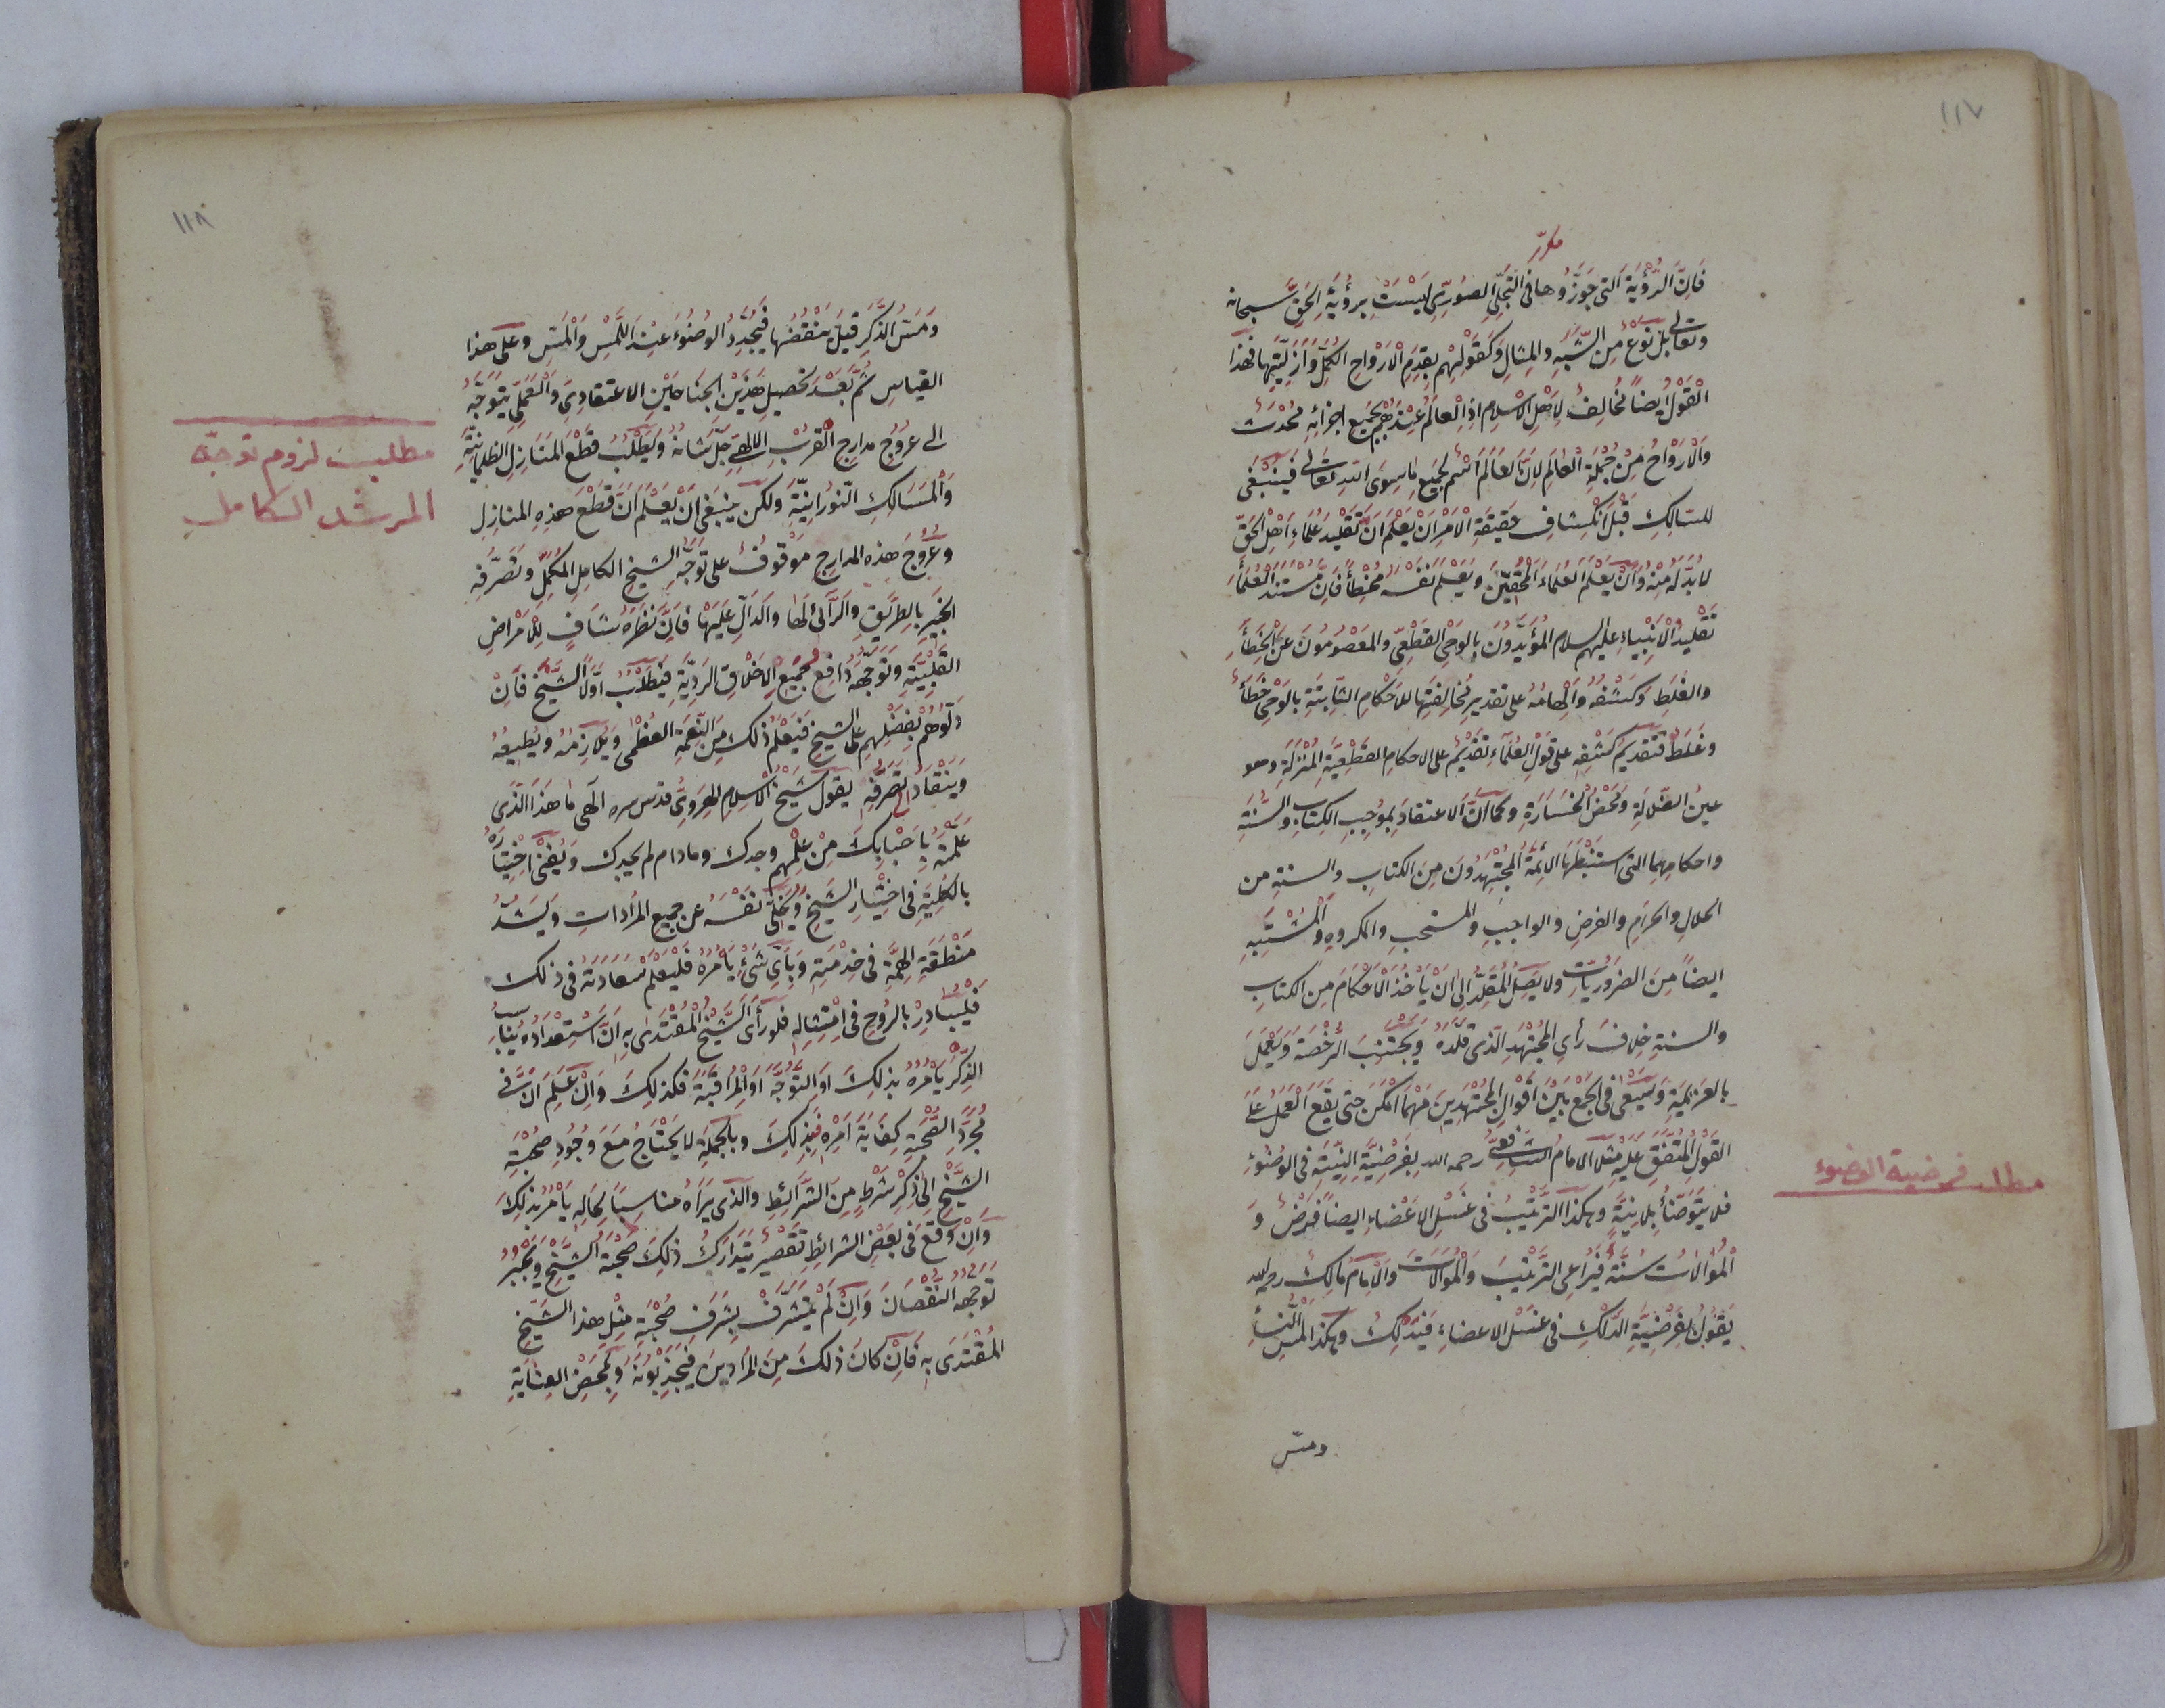 ١١٧
مكرر
فَاِنَّ الرُّؤْيَةَ الَّتى جَوَّزُوها فى التَّجَلِّى الصُّورِىِّ لَيْسَتْ بِرُؤْيَةِ الْحَقِّ سبحانه
وتعالى بَلْ نَوْعٌ مِنَ الشَّبَهِ والمِثالِ وَكَقَوْلِهِمْ بِقِدَمِ الْاَرْوَاحِ الكُمَّلِ وَاَزَلِيَّتِهَا فهذا
الْقَوْلُ ايضاً مُخَالِفٌ لِاَهْلِ الْاِسْلامِ اذِ الْعالَمُ عِنْدَهُمْ بِجَميعِ اجزائِهِ مُحْدَثٌ
وَالْاَرْوَاحُ مِنْ جُمْلَةِ الْعَالَمِ لِاَنَّ العَالَمَ اسْمٌ لِجَميعِ مَاسِوَى اللّهِ تَعَالى فَيَنْبَغى
للسّالِكِ قَبْلَ انْكِشافِ حَقيقَةِ الْاَمْرِ اَنْ يَعْلَمَ اَنَّ تَقْليدَ عُلَمَاءِ اَهْلِ الْحَقِّ
لابُدَّ لَهُ مِنْهُ وَاَنْ يَعْلَمَ العُلَمَاءَ الْمُحِقّينَ وَيَعْلَمَ نَفْسَهُ مُخْطِئاً فَاِنَّ مُسْتَنَدَ الْعُلَمَاءِ
تَقْليدُ الْاَنْبِيَاءِ عليهم السلام المُؤَيَّدُونَ بِالوَحْىِ القَطْعِىِّ والمَعْصُومُونَ عَنِ الْخَطَأِ
والغَلَطِ وَكَشْفُهُ وَاِلْهامُهُ على تقدير مُخالَفَتِها للاَحْكامِ الثّابِتَةِ بالوَحْىِ خَطَأٌ
وغَلَطٌ فَتَقْديمُ كَشْفِهِ على قَوْلِ العُلَمَاءِ تَقْديمٌ على الاحكامِ القَطْعِيَّةِ المُنْزَلَةِ وهو
عينُ الضَّلالَةِ وَمَحْضُ الْخَسَارَةِ وكما انَّ الاعتقادَ بِمُوجِبِ الكِتابِ والسُّنَّةِ
واحكامِهِما التى استَنْبَطَهَا الائِمَّةُ الْمُجْتَهِدُونَ مِنَ الكتابِ والسنةِ من
الحلالِ والحرامِ والفرضِ والواجبِ والمستحبِ والمكروهِ وَالْمُشْتَبِهِ
ايضاً مِنَ الضَرُورِيّاتِ ولا يَصِلُ المُقَلِّدُ اِلى اَنْ يَأْخُذَ الْاَحْكَامَ مِنَ الكتابِ
والسنةِ خِلافَ رَأىِ الْمُجْتَهِدِ الَّذى قَلَّدَهُ وَيَجْتَنِبَ الرُّخْصَةَ وَيَعْمَلَ
بالعَزيمَةِ وَيَسْعَى فى الْجَمْعِ بَيْنَ اَقْوَالِ المُجْتَهِدينَ مَهْمَا اَمْكَنَ حتى يَقَعَ العَمَلُ عَلَى
القَوْلِ المُتَّفَقِ عَلَيْهِ مَثَلاً الامامُ الشافِعىُّ رحمه الله بِفَرْضِيَّةِ النِّيَّةِ فى الوُضُوءِ
مطلب فرضية الوضوء
فلا يَتَوَضَّأُ بِلا نِيَّةٍ وهكذا التَّرْتيبُ فى غَسْلِ الاَعْضَاءِ ايضاً فَرْضٌ وَ
الْمُوَالاتُ سُنَّةٌ فَيُرَاعى التَّرْتيبَ وَالْمُوَالاتَ والاِمَامُ مَالِكٌ رحمه الله
يَقُولُ بِفَرْضِيَّةِ الدَّلْكِ فى غسْلِ الاعضاءِ فَيَدْلِكُ وهكذا لَمْسُ النِّسَاءِ
ومسّ
١١٨
وَمَسُّ الذَّكَرِ قيلَ يَنْقُضُهَا فَيُجَدِّدُ الوُضُوءَ عِنْدَ اللَّمْسِ وَالْمَسِّ وَعلى هذا
القياسِ ثُمَّ بَعْدَ تَحْصيلِ هَذَيْنِ الجَناحَيْنِ الاعتقادِىِّ وَالْعَمَلِىِّ يَتَوَجَّهُ
الى عُرُوجِ مدارِجِ الْقُرْبِ الاِلهِىِّ جَلَّ شَانُهُ وَيَطْلُبُ قَطْعَ المَنَازِلِ الظُّلْمَانِيَّةِ
مطلب لزوم توجه
المرشد الكامل
وَالْمَسَالِكِ النُّورَانِيَّةِ ولكن يَنْبَغى اَنْ يَعْلَمَ اَنَّ قَطْعَ هذِهِ المنازِلِ
وعُرُوجَ هذه المدارِجِ مَوْقُوفٌ على تَوَجُّهِ الشيخِ الكامِلِ المُكَمِّلِ وتَصَرُّفِهِ
الخَبيرِ بِالطَّريقِ والرّائى لَهَا والدّالِّ عَلَيْهَا فَاِنَّ نَظَرَهُ شافٍ لِلْاَمْراضِ
القَلْبِيَّةِ وَتَوَجُّهَهُ دَافِعُ جَميعِ الاَخْلاقِ الرَّدِيَّةِ فَيَطْلُبُ اَوَّلاً الشَّيْخَ فَاِنْ
دَلُّوهُمْ بِفَضْلِهِمْ على الشيخِ فَيَعْلَمُ ذلكَ مِنَ النِّعْمَةِ العُظْمى وَيُلازِمُهُ وَيُطيعُهُ
وَيَنْقَادُ لِتَصَرُّفِهِ يقولُ شَيْخُ الْاِسْلامِ الهِرَوِىُّ قدس سره الٓهى ما هَذَا الَّذى
عَلَّمْتَهُ بِاَحْبَابِكَ مِنْ عِلْمِهِمْ وجدك ومادام لم يجدك وَيُفْنى اخْتِيَارَهُ
بالكُلِّيَّةِ فى اختيارِ الشَّيْخِ وَيُخَلّى نَفْسَهُ عن جميعِ المُراداتِ وَيَشُدُّ
مَنْطَقَةَ الهِمَّةِ فى خِدْمَتِهِ وَبِاَىِّ شَىْءٍ يَأْمُرُهُ فَلْيَعْلَمْ سَعَادَتَهُ فى ذلكَ
فَلْيُبَادِرْ بالرُّوحِ فى امْتِثالِهِ فلو رَأَى الشَّيْخُ الْمُقْتَدَى بِهِ اَنَّ اسْتِعْدَادَهُ يُنَاسِبُ
الذِّكْرَ يَأْمُرُهُ بذلكَ اَوِ التَّوَجُّهَ اَوِ الْمُرَاقَبَةَ فكذلكَ وَاِنْ عَلِمَ اَنَّ فى
مُجَرَّدِ الصُّحْبَةِ كِفَايَةً اَمَرَهُ بذلكَ وبالجملةِ لا يَحْتَاجُ مَعَ وُجُودِ صُحْبَةِ
الشَّيْخِ الى ذِكْرِ شَرْطٍ مِنَ الشَّرائِطِ والَّذى يَرَاهُ مناسِباً لِحَالِهِ يَأْمُرُ بذلكَ
وَاِنْ وَقَعَ فى بَعْضِ الشرائطِ تَقْصيرٌ يَتَدَارَكُ ذلكَ صُحْبَةُ الشَّيْخِ وَيَجْبُرُ
تَوَجُّهُهُ النُّقْصَانَ وَاِنْ لَمْ يَتَشَرَّفْ بِشَرَفِ صُحْبَةِ مِثْلِ هذا الشَّيْخِ
المُقْتَدَى بِهِ فَاِنْ كانَ ذلكَ مِنَ المُرَادينَ فَيَجْذِبُونَهُ وَبِمَحْضِ العِنَايَةِ